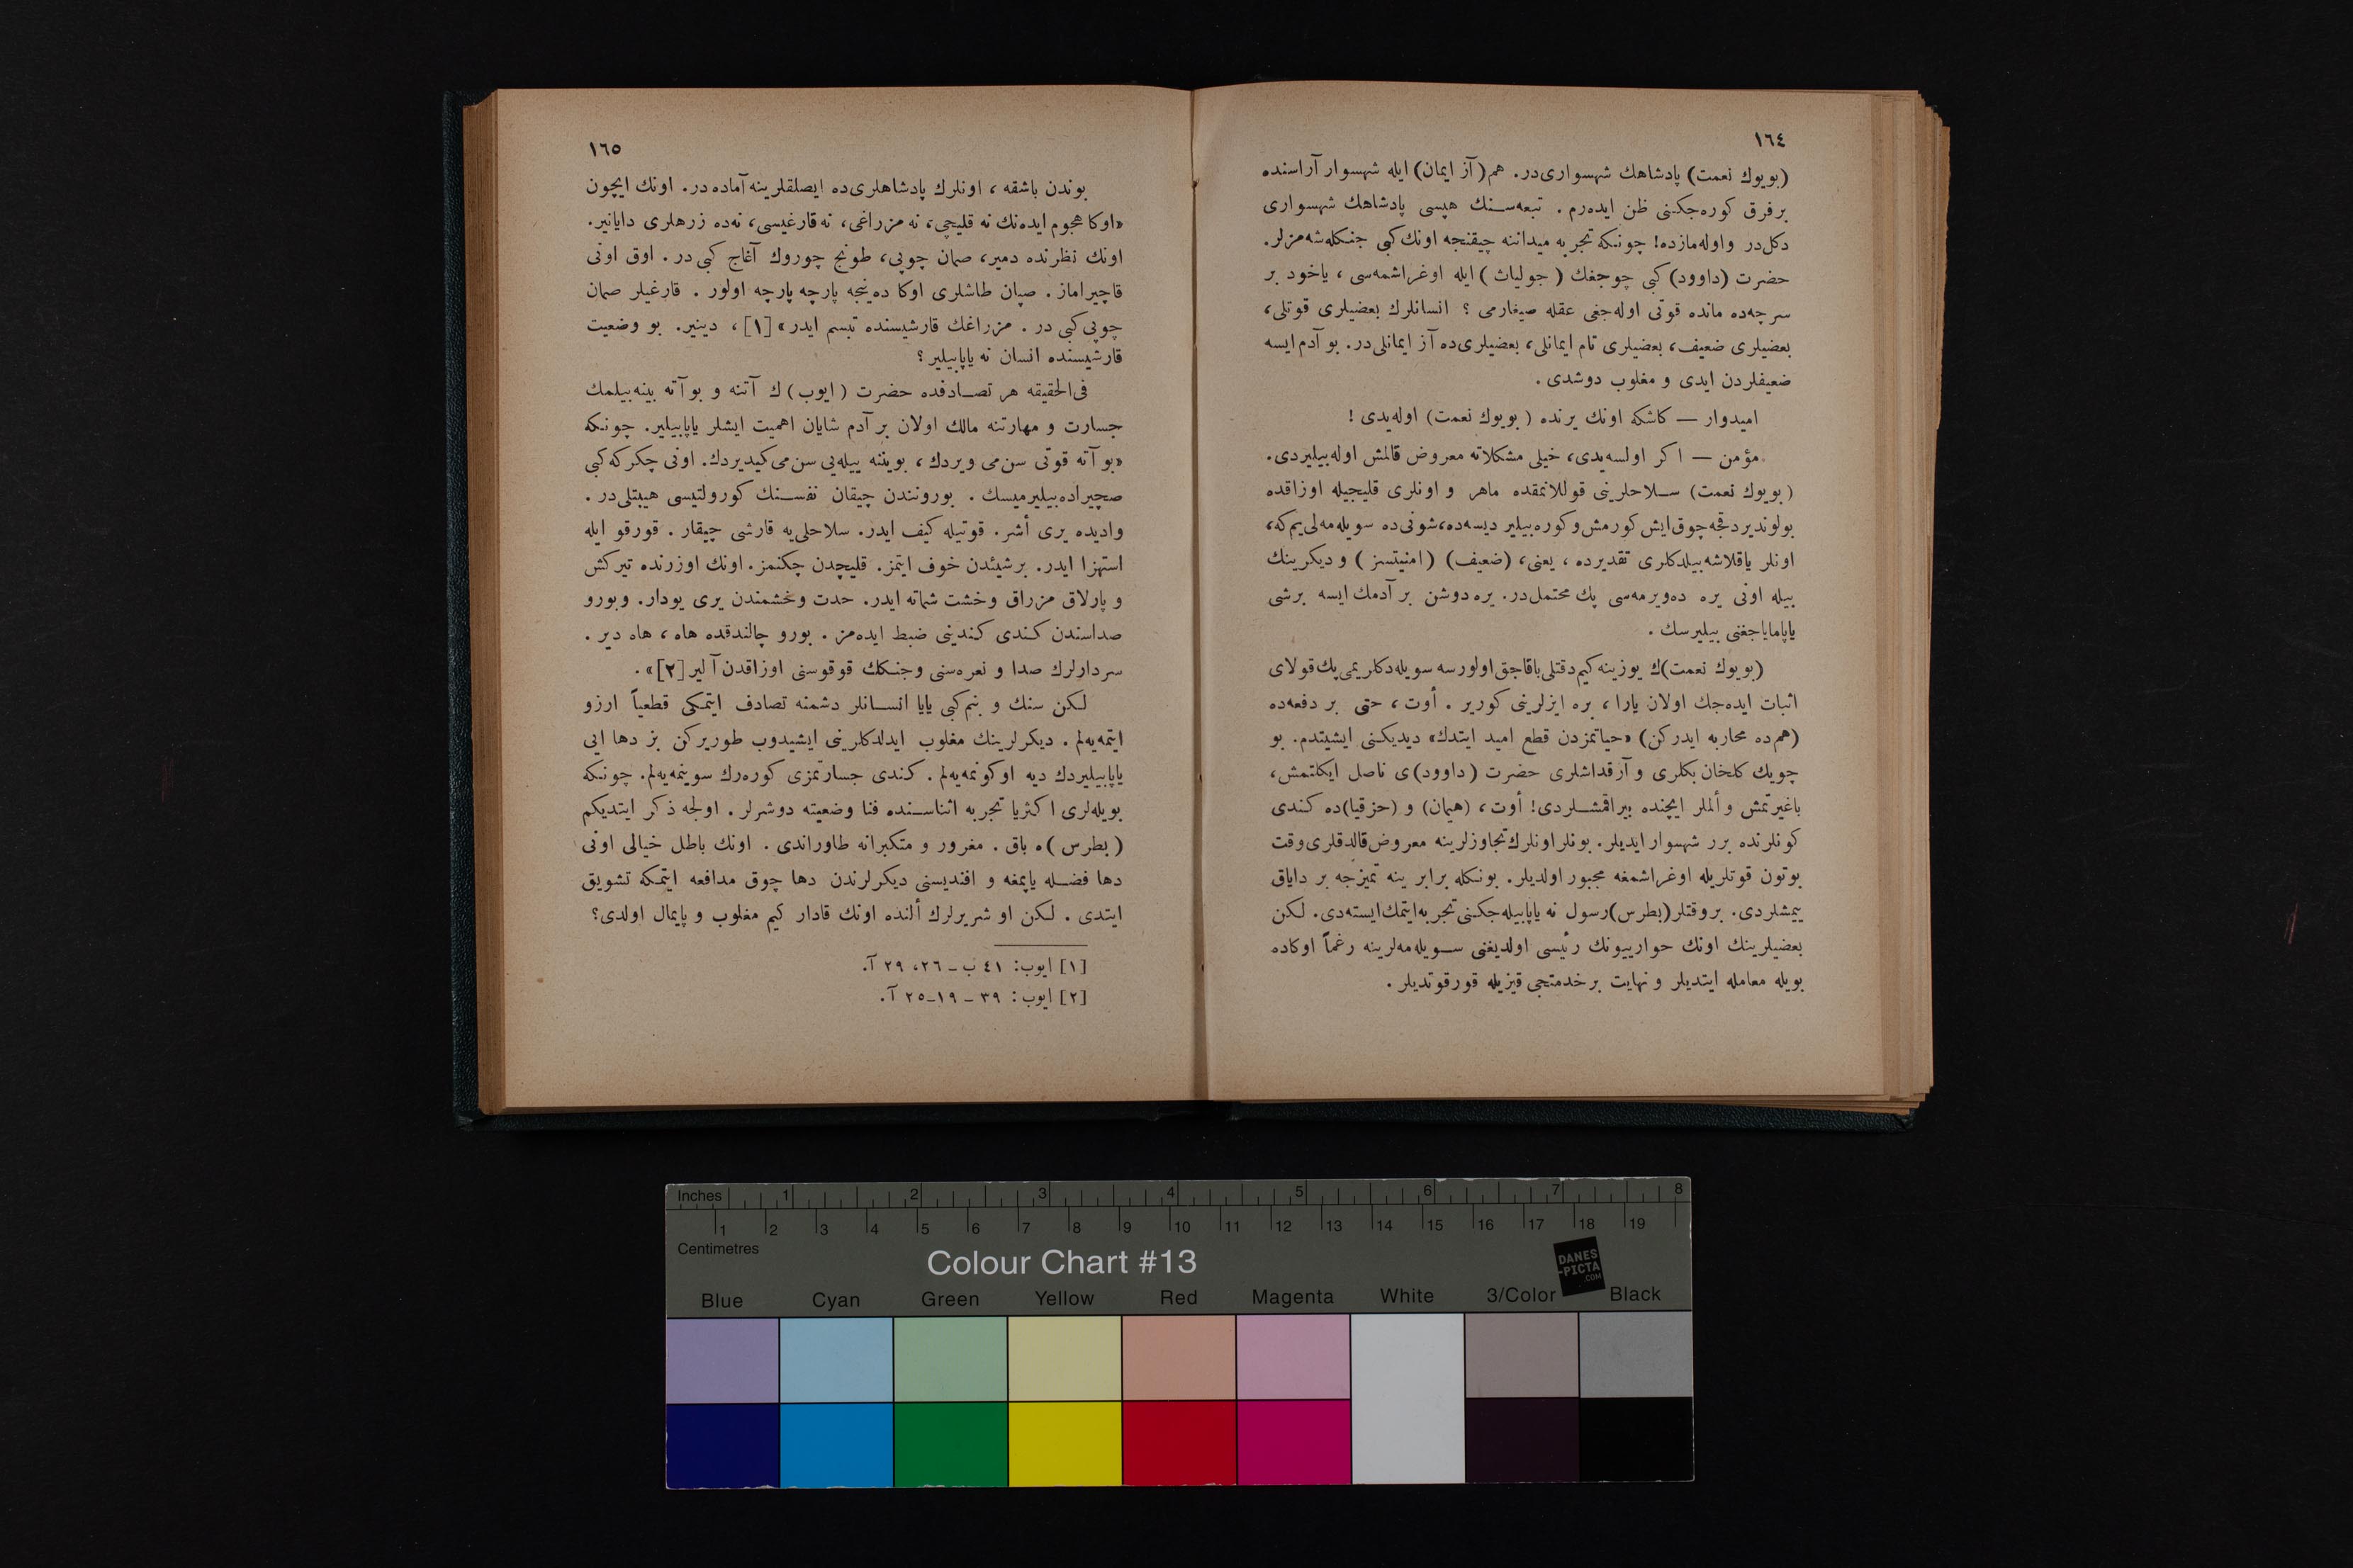 ١٦٤
(بويوك نعمت) پادشاهك شهسواری‌در. هم (آز ایمان) ایله شهسوار آراسنده
برفرق كوره‌جكنی ظن ایده‌رم . تبعه‌سنك هپسی پادشاهك شهسواری
دكل‌در واوله‌مازده! چونكه تجربه میداننه چیقنجه اونك كبی جنكله‌شه‌مزلر.
حضرت (داوود) كبی چوجغك (جولیات) ایله اوغراشمه‌سی ، یاخود بر
سرچه‌ده مانده قوتی اوله‌جغی عقله صیغارمی ؟ انسانلرك بعضیلری قوتلی،
بعضیلری ضعیف، بعضیلری تام ایمانلی، بعضیلری‌ده آز ایمانلی‌در. بو آدم ایسه
ضعیفلردن ایدی و مغلوب دوشدی .
امیدوار — كاشكه اونك یرنده (بويوك نعمت) اوله‌یدی !
مؤمن — اكر اولسه‌یدی، خیلی مشكلاته معروض قالمش اوله‌بیلیردی.
(بويوك نعمت) سلاحلرینی قوللانمقده ماهر و اونلری قلیجیله اوزاقده
بولوندیردقجه چوق‌ایش كورمش و كوره‌بیلیر دیسه‌ده، شونی‌ده سویله‌مه‌لی‌یم‌كه،
اونلر یاقلاشه‌بیلدكلری تقدیرده ، یعنی، (ضعیف) (امنیتسز) و دیكرینك
بیله اونی یره ده‌ویرمه‌سی پك محتمل‌در. یره دوشن بر آدمك ایسه برشی
یاپامایاجغنی بیلیرسك .
(بويوك نعمت)ك یوزینه كیم دقتلی باقاجق اولورسه سویله‌دكلریمی پك قولای
اثبات ایده‌جك اولان یارا ، بره ایزلرینی كوریر . أوت ، حتی بر دفعه‌ده
(هم‌ده محاربه ایدركن) «حیاتمزدن قطع امید ایتدك» دیدیكنی ایشیتدم. بو
چویك كلخان بكلری و آرقداشلری حضرت (داوود)ی ناصل ایكلتمش،
باغیرتمش و ألملر ایچنده بیراقمشلردی! أوت، (هیمان) و (حزقیا)ده كندی
كونلرنده برر شهسوار ایدیلر. بونلر اونلرك تجاوزلرینه معروض قالدقلری وقت
بوتون قوتلریله اوغراشمغه مجبور اولدیلر. بونكله برابر ینه تمیزجه بر دایاق
ییمشلردی. بروقتلر (بطرس) رسول نه یاپابیله‌جكنی تجربه‌ایتمك‌ایسته‌دی. لكن
بعضیلرینك اونك حوارییونك رئیسی اولدیغنی سویله‌مه‌لرینه رغماً اوكاده
بویله معامله ایتدیلر و نهایت برخدمتجی قیزیله قورقوتدیلر .
١٦٥
بوندن باشقه ، اونلرك پادشاهلری‌ده ایصلقلرینه آماده‌در. اونك ایچون
«اوكا هجوم ایده‌نك نه قلیجی، نه مزراغی، نه قارغیسی، نه‌ده زرهلری دایانیر.
اونك نظرنده دمیر، صمان چوپی، طونج چوروك آغاج كبی‌در . اوق اونی
قاچیراماز . صپان طاشلری اوكا ده‌ینجه پارچه پارچه اولور . قارغیلر صمان
چوپی‌كبی در . مزراغك قارشیسنده تبسم ایدر» [١]، دینیر. بو وضعیت
قارشیسنده انسان نه یاپابیلیر؟
فی‌الحقیقه هر تصادفده حضرت (ایوب)ك آتنه و بو آته بینه‌بیلمك
جسارت و مهارتنه مالك اولان بر آدم شایان اهمیت ایشلر یاپابیلیر. چونكه
«بو آته قوتی سن‌می ویردك ، بویننه ییله‌یی سن‌می كیدیردك. اونی چكركه‌كبی
صچیراده‌بیلیرمیسك . بورونندن چیقان نفسنك كورولتیسی هیبتلی‌در .
وادیده یری أشر. قوتیله كیف ایدر. سلاحلی‌یه قارشی چیقار . قورقو ایله
استهزا ایدر. برشیئدن خوف ایتمز. قلیچدن چكنمز. اونك اوزرنده تیركش
و پارلاق مزراق وخشت شماته ایدر. حدت وخشمندن یری یودار. وبورو
صداسندن كندی كندینی ضبط ایده‌مز . بورو چالندقده هاه ، هاه دیر .
سردارلرك صدا و نعره‌سنی وجنكك قوقوسنی اوزاقدن آلیر [٢]» .
لكن سنك و بنم‌كبی یایا انسانلر دشمنه تصادف ایتمكی قطعیاً ارزو
ایتمه‌یه‌لم . دیكرلرینك مغلوب ایدلدكلرینی ایشیدوب طوریركن بز دها ایی
یاپابیلیردك دیه اوكونمه‌یه‌لم . كندی جسارتمزی كوره‌رك سوینمه‌یه‌لم. چونكه
بویله‌لری اكثریا تجربه اثناسنده فنا وضعیته دوشرلر . اولجه ذكر ایتدیكم
(بطرس)ه باق . مغرور و متكبرانه طاوراندی . اونك باطل خیالی اونی
دها فضله یاپمغه و افندیسنی دیكرلرندن دها چوق مدافعه ایتمكه تشویق
ایتدی . لكن او شریرلرك ألنده اونك قادار كیم مغلوب و پایمال اولدی؟
[١] ایوب: ٤١ ب ـ ٢٦، ٢٩ آ.
[٢] ایوب: ٣٩ ـ ١٩ـ٢٥ آ.
Inches 1 2 3 4 5 6 7 8
1 2 3 4 5 6 7 8 9 10 11 12 13 14 15 16 17 18 19
Centimetres
Colour Chart #13
DANES
-PICTA
.COM
Blue Cyan Green Yellow Red Magenta White 3/Color Black